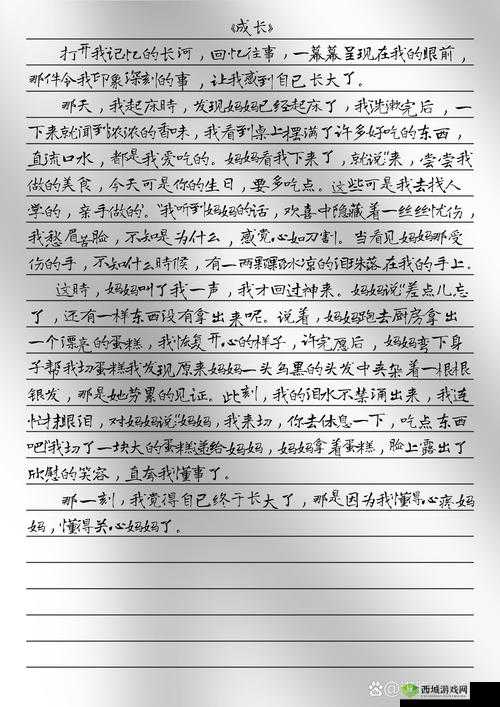 《成长》
打开我记忆的长河，回忆往事，一幕幕呈现在我的眼前，
那件令我印象深刻的事，让我感到自己长大了。
那天，我起床時，发现妈妈已经起床了，我洗漱完后，一
下来就闻到浓浓的香味，我看到桌上摆满了许多好吃的东西，
直流口水，都是我爱吃的。妈妈看我下来了，就说"来，尝尝我
做的美食，今天可是你的生日，要多吃点。这些可是我去找人
学的，亲手做的"。"我听到妈妈的话，欢喜中隐藏着一丝丝忧伤，
我愁眉苦脸，不知是为什么，感觉心如刀割。当看见妈妈那受
伤的手，不知什么時候，有一两颗颗冰凉的泪珠落在我的手上。
这時，妈妈叫了我一声，我才回过神来。妈妈说"差点儿忘
了，还有一样东西没有拿出来呢。说着，妈妈跑去厨房拿出
一个漂亮的蛋糕，我恢复开心的样子，许完愿后，妈妈弯下身
子帮我切蛋糕我发现原来妈妈一头乌黑的头发中夹杂着一根根
银发，那是她劳累的见证。此刻，我的泪水不禁涌出来，我连
忙抹眼泪，对妈妈说"妈妈，我来切，你去休息一下，吃点东西
吧"我切了一块大的蛋糕递给妈妈，妈妈拿着蛋糕，脸上露出了
欣慰的笑容，直夸我懂事了。
那一刻，我觉得自己终于长大了，那是因为我懂得心疼妈
妈，懂得关心妈妈了。
西城游戏网